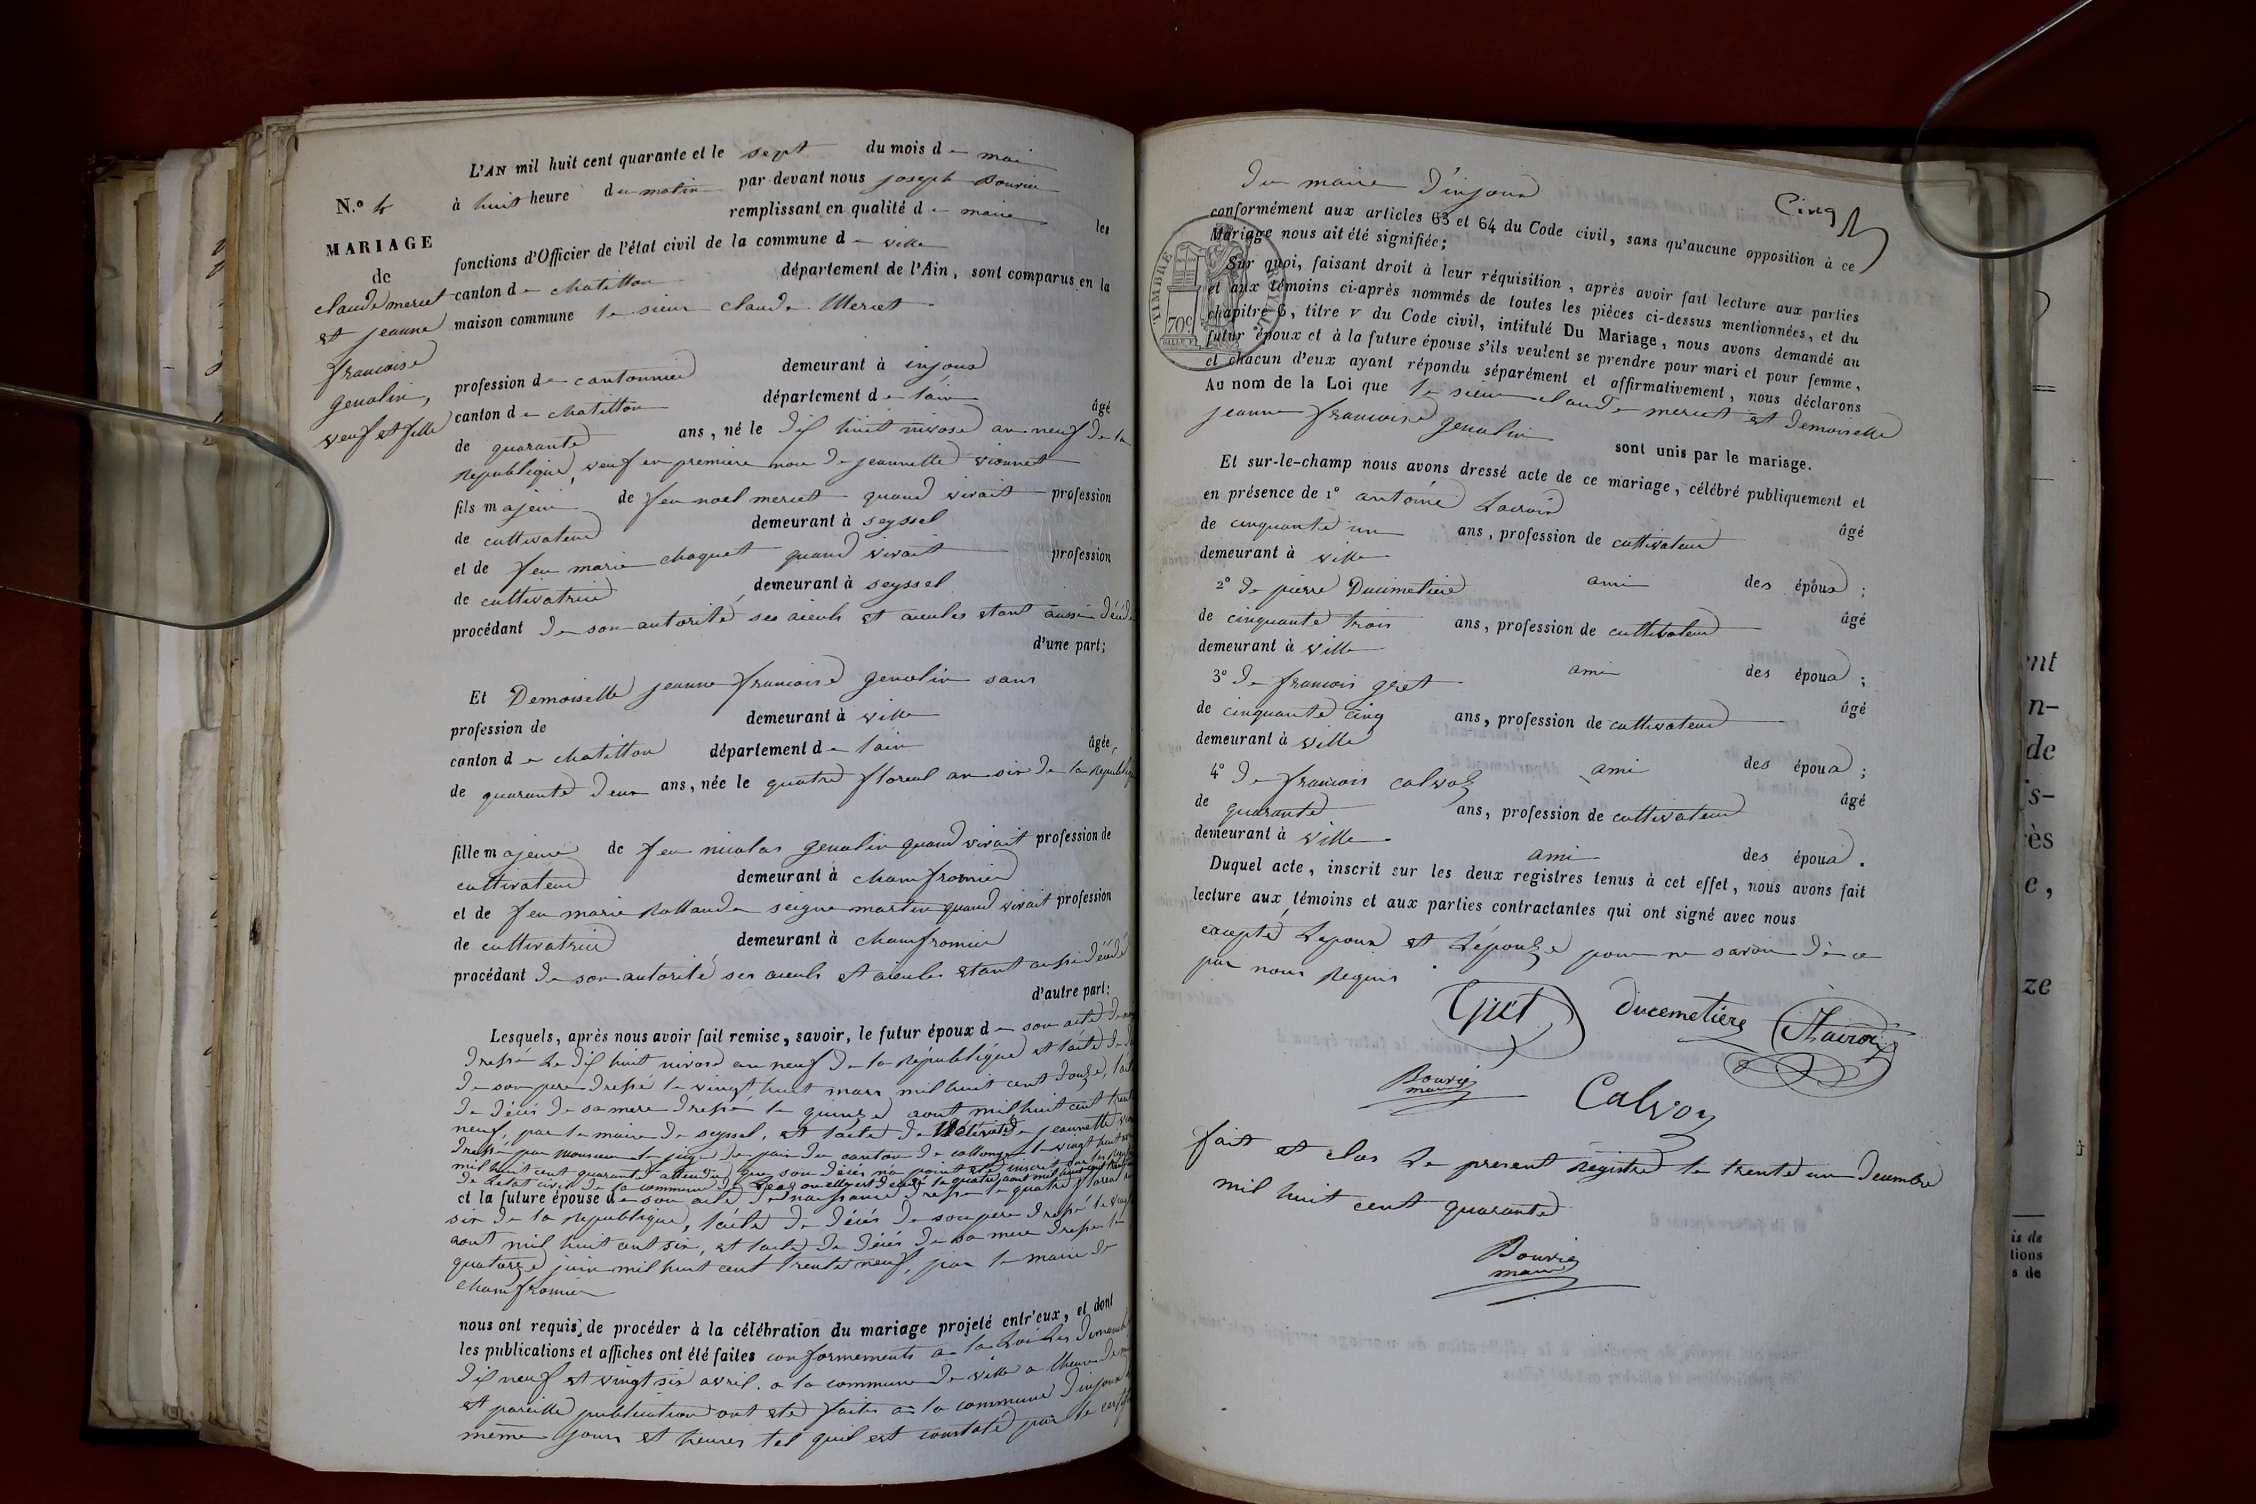 L'AN mil huit cent quarante et le sept du mois de mai
à huit heure du matin par devant nous joseph Bouvier
remplissant en qualité de maire les
fonctions d'Officier de l'état civil de la commune de ville
canton de chatillon département de l'Ain, sont comparus en la
maison commune le sieur claude Meriet
N.º 4
MARIAGE
de
claude meriet
et jeanne
francoise
genolin,
veuf et fille
profession de cantonnier demeurant à injoux
canton de chatillon départcment de lain âgé
de quarante ans, né le dix huit nivose an neuf de la
Republique, veuf en premiere noce de jeannette vionnet
fils majeur de feu noel meriet quand vivait profession
de cultivateur demeurant à seyssel
et de feu marie choquet quand vivait profession
de cultivatrice demeurant à seyssel
procédant de son autorité ses aieuls et aieules etant aussi
d'une part;
Et Demoiselle jeanne francoise genolin sans
profession de demeurant à ville
canton de chatillon département de lain âgée
de quarante deux ans, née le quatre floreal an six de la Republique
fille majeure de feu nicolas genolin quand vivait profession de
cultivateur demeurant à chamfromier
et de feu marie Rollande seigne martin quand vivait profession
de cultivatrice demeurant à chamfromier
procédant de son autorité ses aieuls et aieules etant aussi décédé
d'autre part:
Lesquels, après nous avoir fait remise, savoir, le futur époux de son acte de
dressé le dix huit nivose an neuf de la République et lacte de
de son pere dressé le vingt huit mars mil huit cent douze,
de décés de sa mere dressé le quinze aout mil huit cent
neuf, par le maire de seyssel, et lacte de de jeannette
dressé par monsieur le juge de paix du canton de collonge le vingt huit
mil huit cent quarante attendu que son décés na point été inscrit sur les
de letat civil de la commune de le quatre aout mil huit cent
et la future épouse de son acte de naissance dressé le quatre floreal an
six de la Republique, lacte de décés de son pere dressé le
aout mil huit cent six, et lacte de décés de sa mere dressé le
quatorze juin mil huit cent trente neuf, par le maire de
chamfromier
nous ont requis de procéder à la célébration du mariage projeté entr'eux, et dont
les publications et affiches ont été faites conformements a la Loi les
dix neuf et vingt six avril. a la commune de ville a lheure de
et pareille publication ont eté faites a la commune dinjoux
même jours et heures tel quel est constaté par le
du maire dinjoux
Cinq
conformément aux articles 63 et 64 du Code civil, sans qu'aucune opposition à ce
Mariage nous ait été signifiée;
TIMBRE ROYAL
70c
Sur quoi, faisant droit à leur réquisition, après avoir fait lecture aux parties
et aux témoins ci-après nommés de toutes les pièces ci-dessus mentionnées, et du
chapitre 6, titre v du Code civil, intitulé Du Mariage, nous avons demandé au
futur époux et à la future épouse s'ils veulent se prendre pour mari et pour femme,
et chacun d'eux ayant répondu séparément et affirmativement, nous déclarons
Au nom de la Loi que le sieur claude meriet et demoiselle
jeanne francoise genolin sont unis par le mariage.
Et sur-le-champ nous avons dressé acte de ce mariage, célébré publiquement et
en présence de 1º antoine âgé
de cinquante un ans, profession de cultivateur
demeurant à ville ami des époux;
2º de pierre Ducimetiere âgé
de cinquante trois ans, profession de cultivateur
demeurant à ville ami des époux;
3º de francois gret âgé
de cinquante cinq ans, profession de cultivateur
demeurant à ville ami des époux;
4º de francois calvoz âgé
de quarante ans, profession de cultivateur
demeurant à ville ami des époux.
Duquel acte, inscrit sur les deux registres tenus à cet effet, nous avons fait
lecture aux témoins et aux parties contractantes qui ont signé avec nous
excepté Lepoux et Lépouze pour ne savoir de ce
par nous Requis
Gret ducemetiere
Bouvier
maire
Calvoz
fait et clos Le present Registre le trente un decembre
mil huit cent quarante
Bouvier
maire